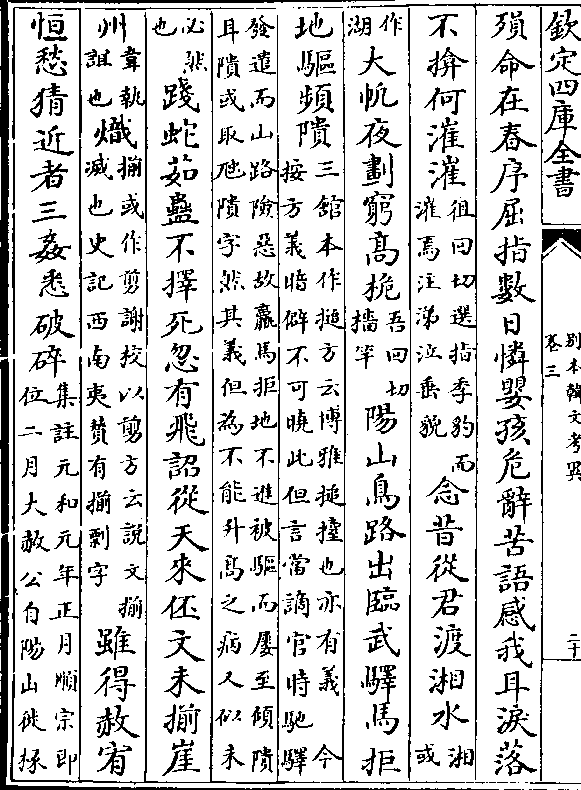 欽定四庫全書
別本韓文考異
卷三
二十
殞命在春序屈指數日憐嬰孩危辭苦語感我耳淚落
不揜何漼漼徂回切選指季豹而漼焉注涕泣垂貌念昔從君渡湘水湘或
作湖大帆夜劃窮高桅吾回切檣竿陽山鳥路出臨武驛馬拒
地驅頻隤三舘本作搥方云博雅搥擿也亦有義今按方義暗僻不可曉此但言當謫官時馳驛
發遣而山路險惡故羸馬拒地不進被驅而屢至傾隤耳隤或取虺隤字然其義但為不能升高之病又似未
必然也踐蛇茹蠱不擇死忽有飛詔從天來伾文未揃崖
州韋執誼也熾揃或作剪謝校以剪方云說文揃滅也史記西南夷贊有揃剽字雖得赦宥
恒愁猜近者三姦悉破碎集註元和元年正月順宗即位二月大赦公自陽山徙掾